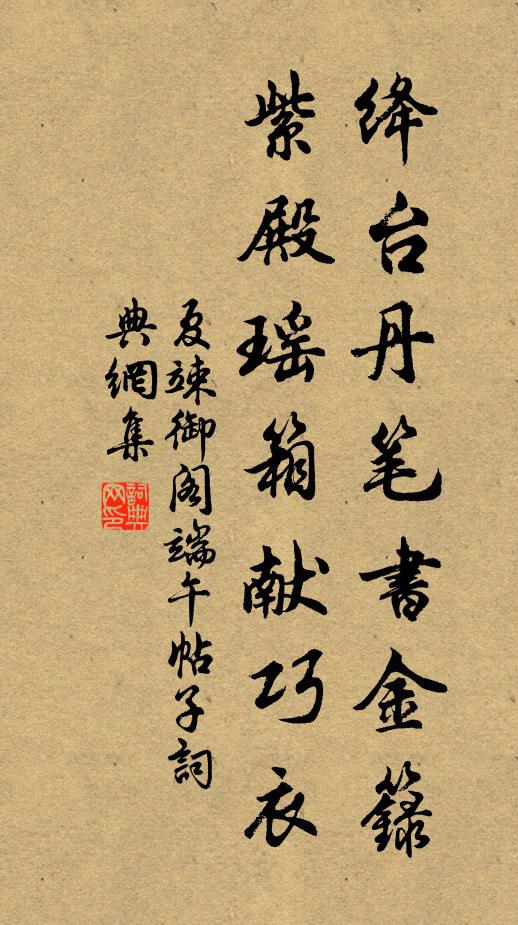 绛台丹笔書金籙
紫殿瑶箱献巧衣
夏竦御阁端午帖子詞
典網集
詞典
网印